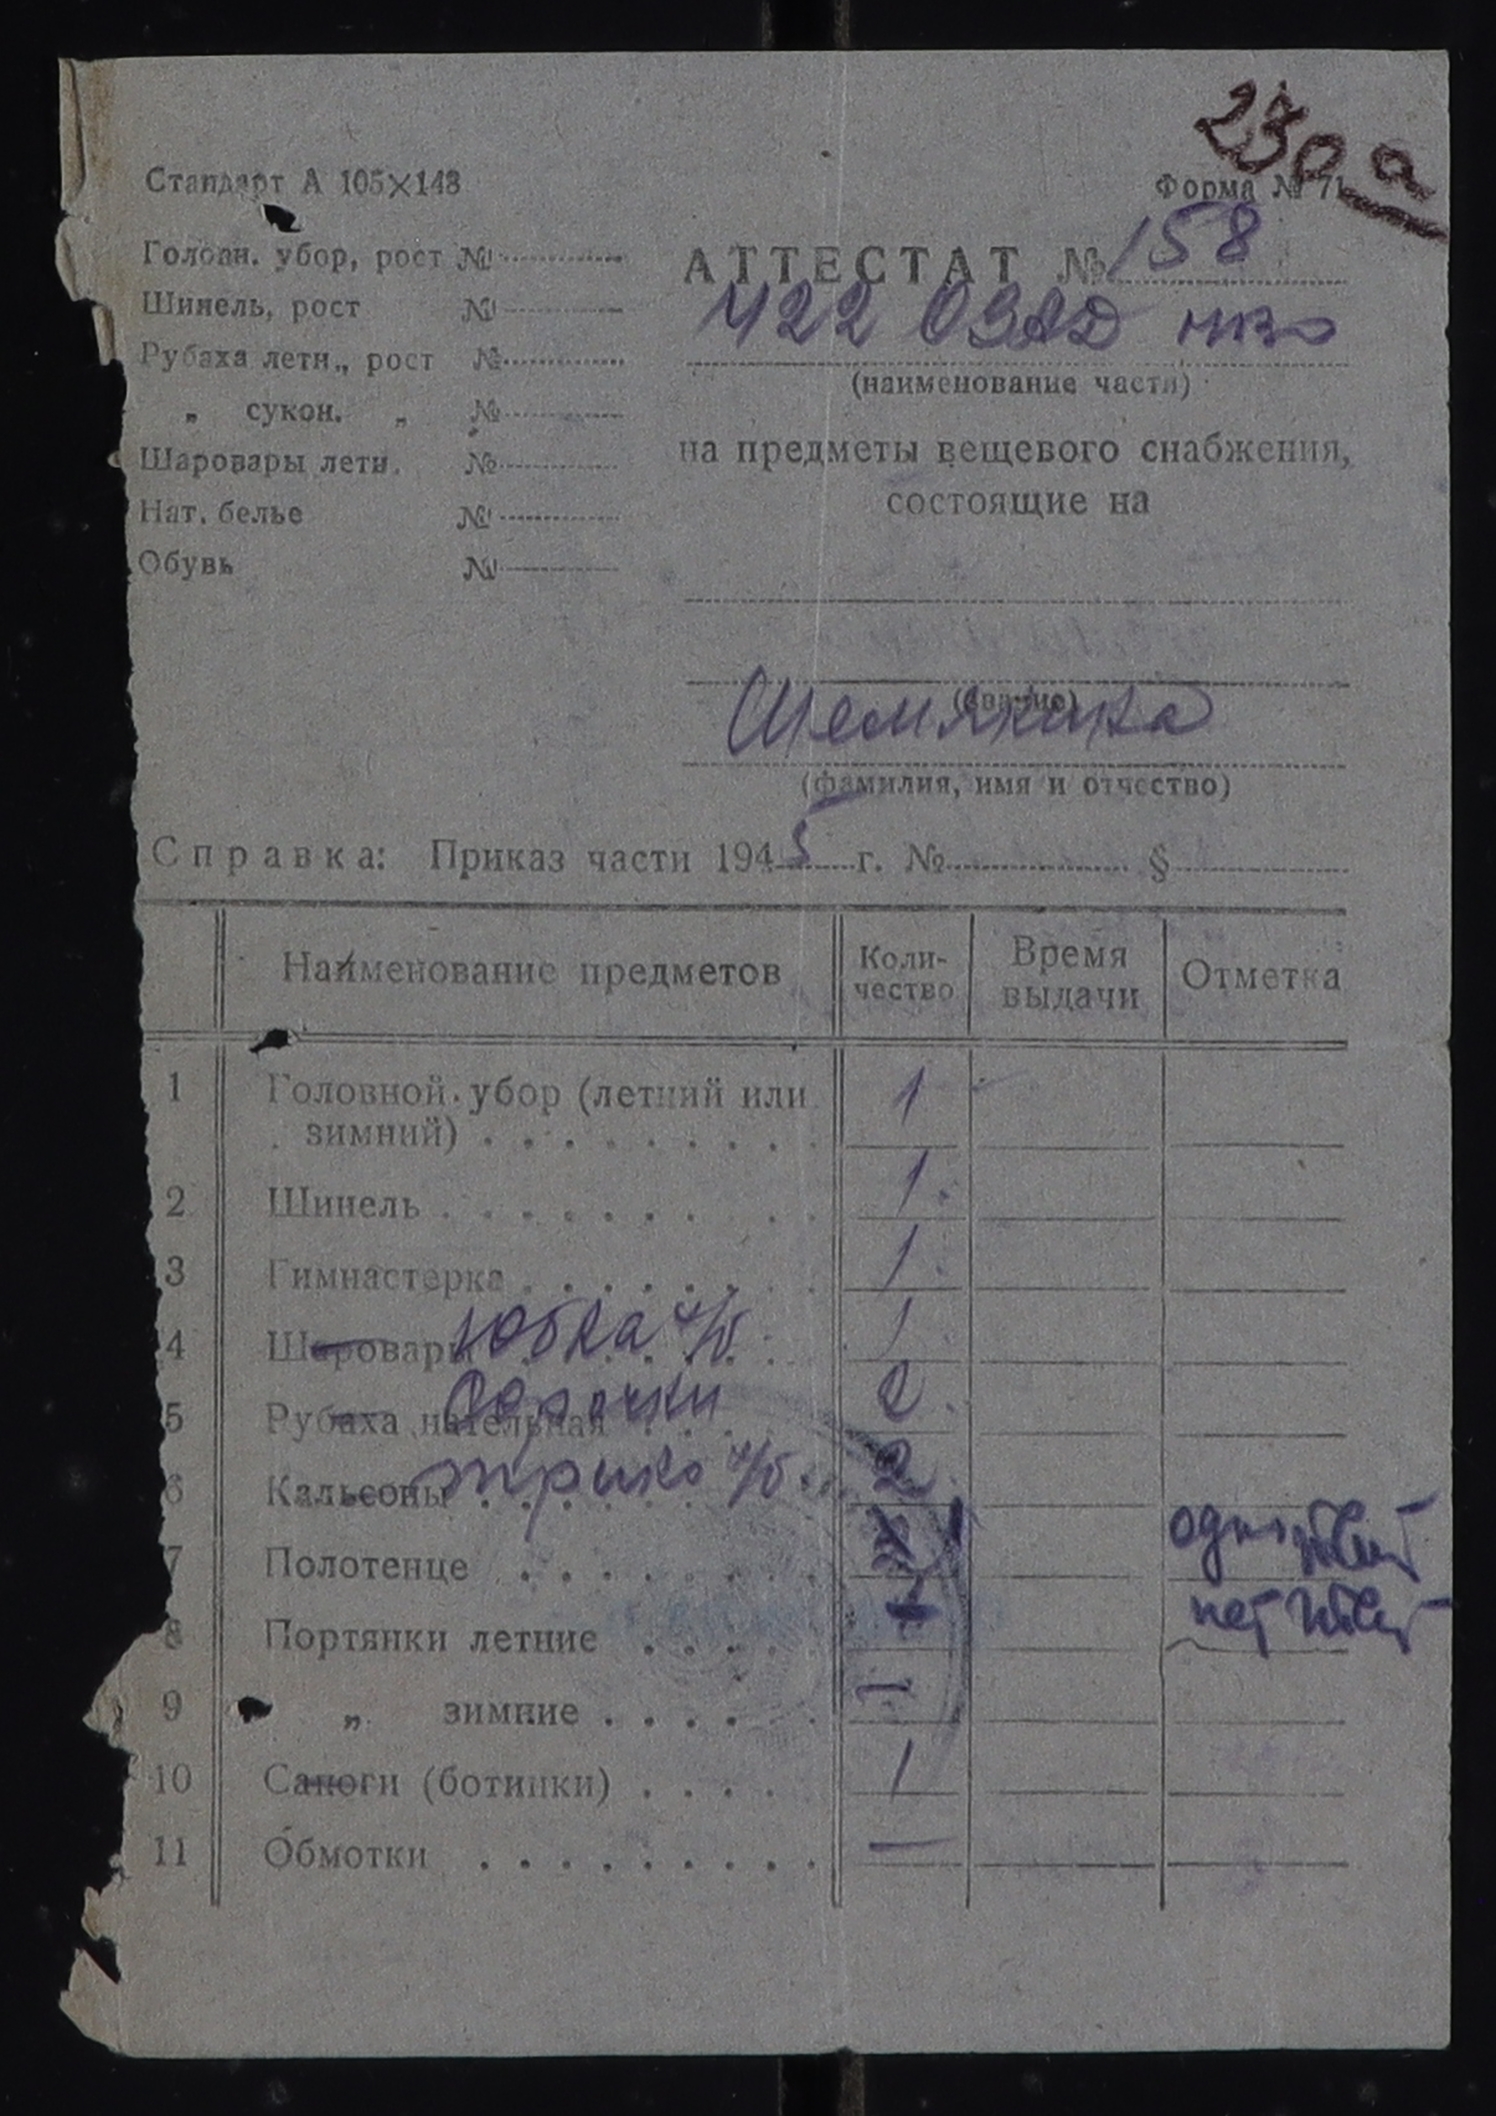 230 а
Стандарт А 105×148
Форма № 71
Головн. убор, рост №
Шинель, рост №
Рубаха летн., рост №
„ сукон. „ №
Шаровары летн. №
Нат. белье №
Обувь №
АТТЕСТАТ № 158
422 ОЗАД
(наименование части)
на предметы вещевого снабжения,
состоящие на
(звание)
Шемякина
(фамилия, имя и отчество)
Справка: Приказ части 1945 г. № §
Наименование предметов Коли-чество Время выдачи Отметка
1 Головной убор (летний или зимний) 1
2 Шинель 1
3 Гимнастерка 1
4 Шаровары Юбка х/б 1
5 Рубаха нательная Сорочки 2
6 Кальсоны трико х/б 2
7 Полотенце 1
8 Портянки летние
9 „ зимние 1
10 Сапоги (ботинки) 1
11 Обмотки —